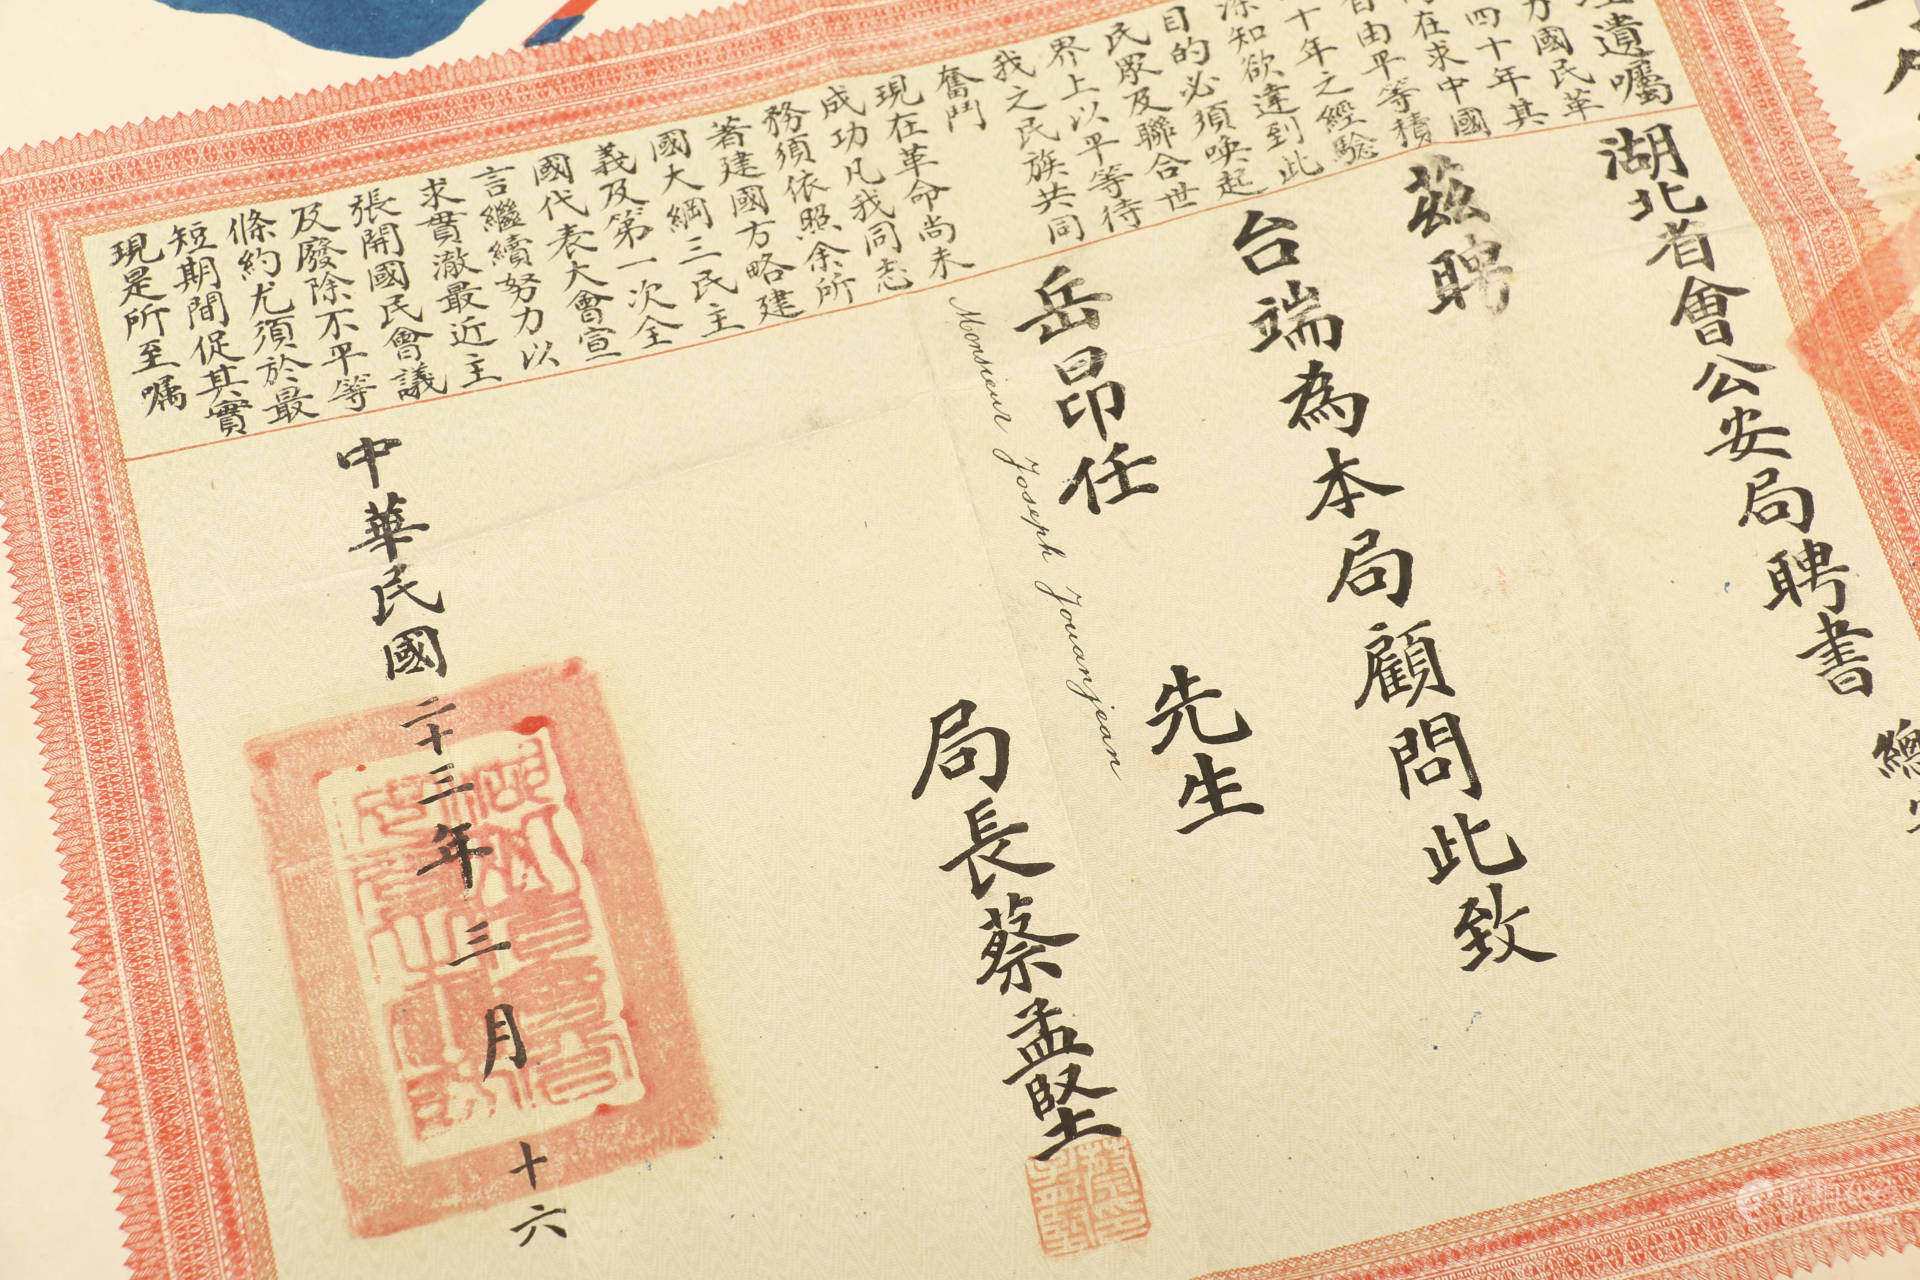 遺囑
方國民革
四十年其
在求中國
自由平等積
十年之經驗
深知欲達到此
目的必須喚起
民眾及聯合世
界上以平等待
我之民族共同
奮鬥
現在革命尚未
成功凡我同志
務須依照余所
著建國方略建
國大綱三民主
義及第一次全
國代表大會宣
言繼續努力以
求貫澈最近主
張開國民會議
及廢除不平等
條約尤須於最
短期間促其實
現是所至囑
湖北省會公安局聘書
總
茲聘
台端為本局顧問此致
岳昂任 先生
Monsieur Joseph Jouanjean
局長蔡孟堅
中華民國二十三年三月十六